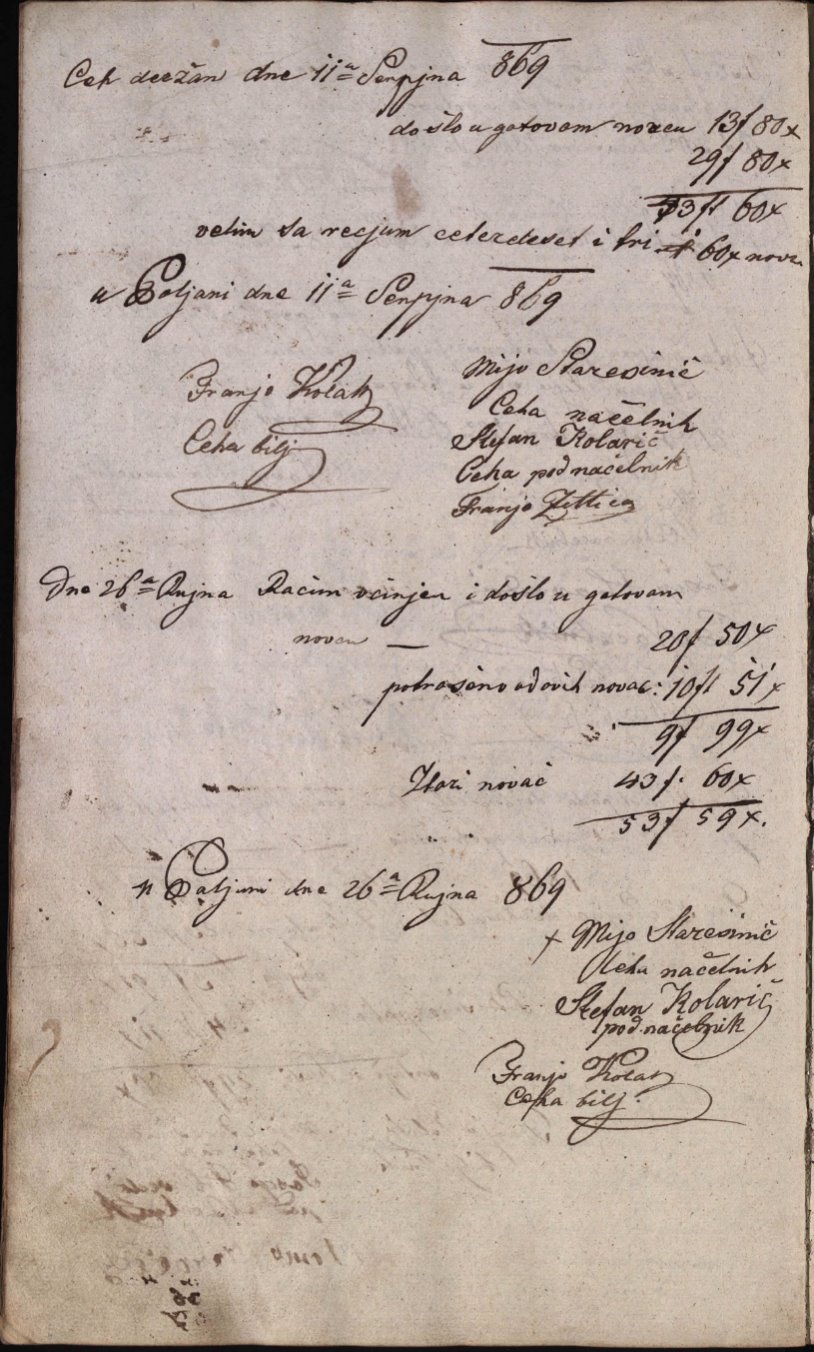 Ceh deržan dne 11a Serpjna 869
došlo u gotovom novcu 13f 80x
29f 80x
43ft 60x
velim sa recjum ceterdeset i tri f 60x novc
u Poljani dne 11a Serpjna 869
Franjo Kolak
Ceha bilj
Mijo Staresinič
Ceha načelnik
Stefan Kolarič
Ceha podnačelnik
Franjo
Dne 26a Rujna Račun včinjen i došlo u gotovom
novcu — 20f 50x
potrošeno od ovih novac: 10ft 51x
9f 99x
Stari novac 43f. 60x
53f 59x.
u Poljani dne 26a Rujna 869
+ Mijo Staresinič
Ceha načelnik
Stefan Kolarič
podnačelnik
Franjo Kolak
Ceha bilj.